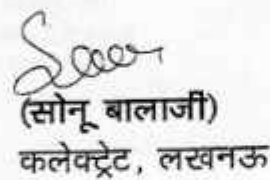 (सोनू बालाजी)
कलेक्ट्रेट, लखनऊ